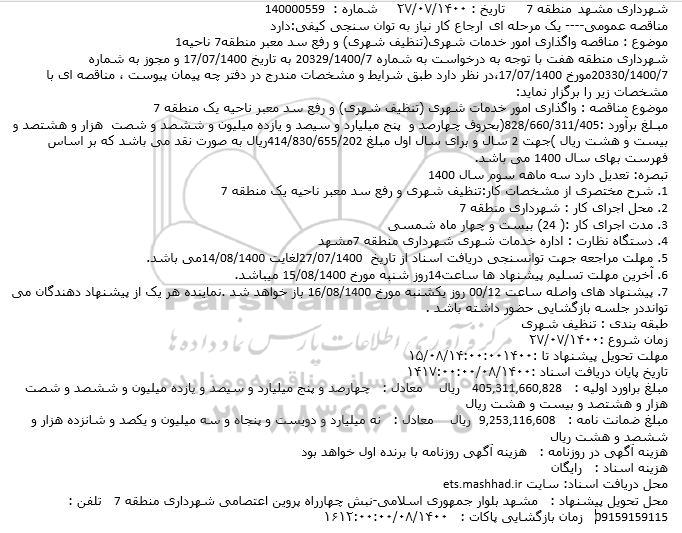 شهرداری مشهد منطقه 7     تاریخ : ۲۷/۰۷/۱۴۰۰     شماره : 140000559
مناقصه عمومی---- یک مرحله ای ارجاع کار نیاز به توان سنجی کیفی:دارد
موضوع : مناقصه واگذاری امور خدمات شهری(تنظیف شهری) و رفع سد معبر منطقه7 ناحیه1
شهرداری منطقه هفت با توجه به درخواست به شماره 20329/1400/7 به تاریخ 17/07/1400 و مجوز به شماره
20330/1400/7مورخ 17/07/1400،در نظر دارد طبق شرایط و مشخصات مندرج در دفتر چه پیمان پیوست ، مناقصه ای با
مشخصات زیر را برگزار نماید:
موضوع مناقصه : واگذاری امور خدمات شهری (تنظیف شهری) و رفع سد معبر ناحیه یک منطقه 7
مبلغ برآورد :828/660/311/405(بحروف چهارصد و  پنج میلیارد و سیصد و یازده میلیون و ششصد و شصت  هزار و هشتصد و
بیست و هشت ریال )جهت 2 سال و برای سال اول مبلغ 414/830/655/202ریال به صورت نقد می باشد که بر اساس
فهرست بهای سال 1400 می باشد.
تبصره: تعدیل دارد سه ماهه سوم سال 1400
1. شرح مختصری از مشخصات کار:تنظیف شهری و رفع سد معبر ناحیه یک منطقه 7
2. محل اجرای کار : شهرداری منطقه 7
3. مدت اجرای کار :( 24) بیست و چهار ماه شمسی
4. دستگاه نظارت : اداره خدمات شهری شهرداری منطقه 7مشهد
5. مهلت مراجعه جهت توانسنجی دریافت اسناد از تاریخ  27/07/1400لغایت 14/08/1400می باشد.
6. آخرین مهلت تسلیم پیشنهاد ها ساعت14روز شنبه مورخ 15/08/1400 میباشد.
7. پیشنهاد های واصله ساعت 00/12 روز یکشنبه مورخ 16/08/1400 باز خواهد شد .نماینده هر یک از پیشنهاد دهندگان می
تواند‌در جلسه بازگشایی حضور داشته باشد .
طبقه بندی : تنظیف شهری
زمان شروع :۲۷/۰۷/۱۴۰۰
مهلت تحویل پیشنهاد تا :۱۵/۰۸/۱۴:۰۰:۰۰۱۴۰۰
تاریخ پایان دریافت اسناد :۱۴۱۷:۰۰:۰۰/۰۸/۱۴۰۰
مبلغ برآورد اولیه :   405,311,660,828   ریال    معادل :   چهارصد و پنج میلیارد و سیصد و یازده میلیون و ششصد و شصت
هزار و هشتصد و بیست و هشت ریال
مبلغ ضمانت نامه :   9,253,116,608  ریال    معادل :   نه میلیارد و دویست و پنجاه و سه میلیون و یکصد و شانزده هزار و
ششصد و هشت ریال
هزینه آگهی در روزنامه :   هزینه آگهی روزنامه با برنده اول خواهد بود
هزینه اسناد :   رایگان
محل دریافت اسناد: سایت ets.mashhad.ir
محل تحویل پیشنهاد :   مشهد بلوار جمهوری اسلامی-نبش چهارراه پروین اعتصامی شهرداری منطقه 7   تلفن :
09159159115     زمان بازگشایی پاکات :   ۱۶۱۲:۰۰:۰۰/۰۸/۱۴۰۰
ParsNamadData
۰۲۱-۸۸۳۴۹۶۷۰-۵